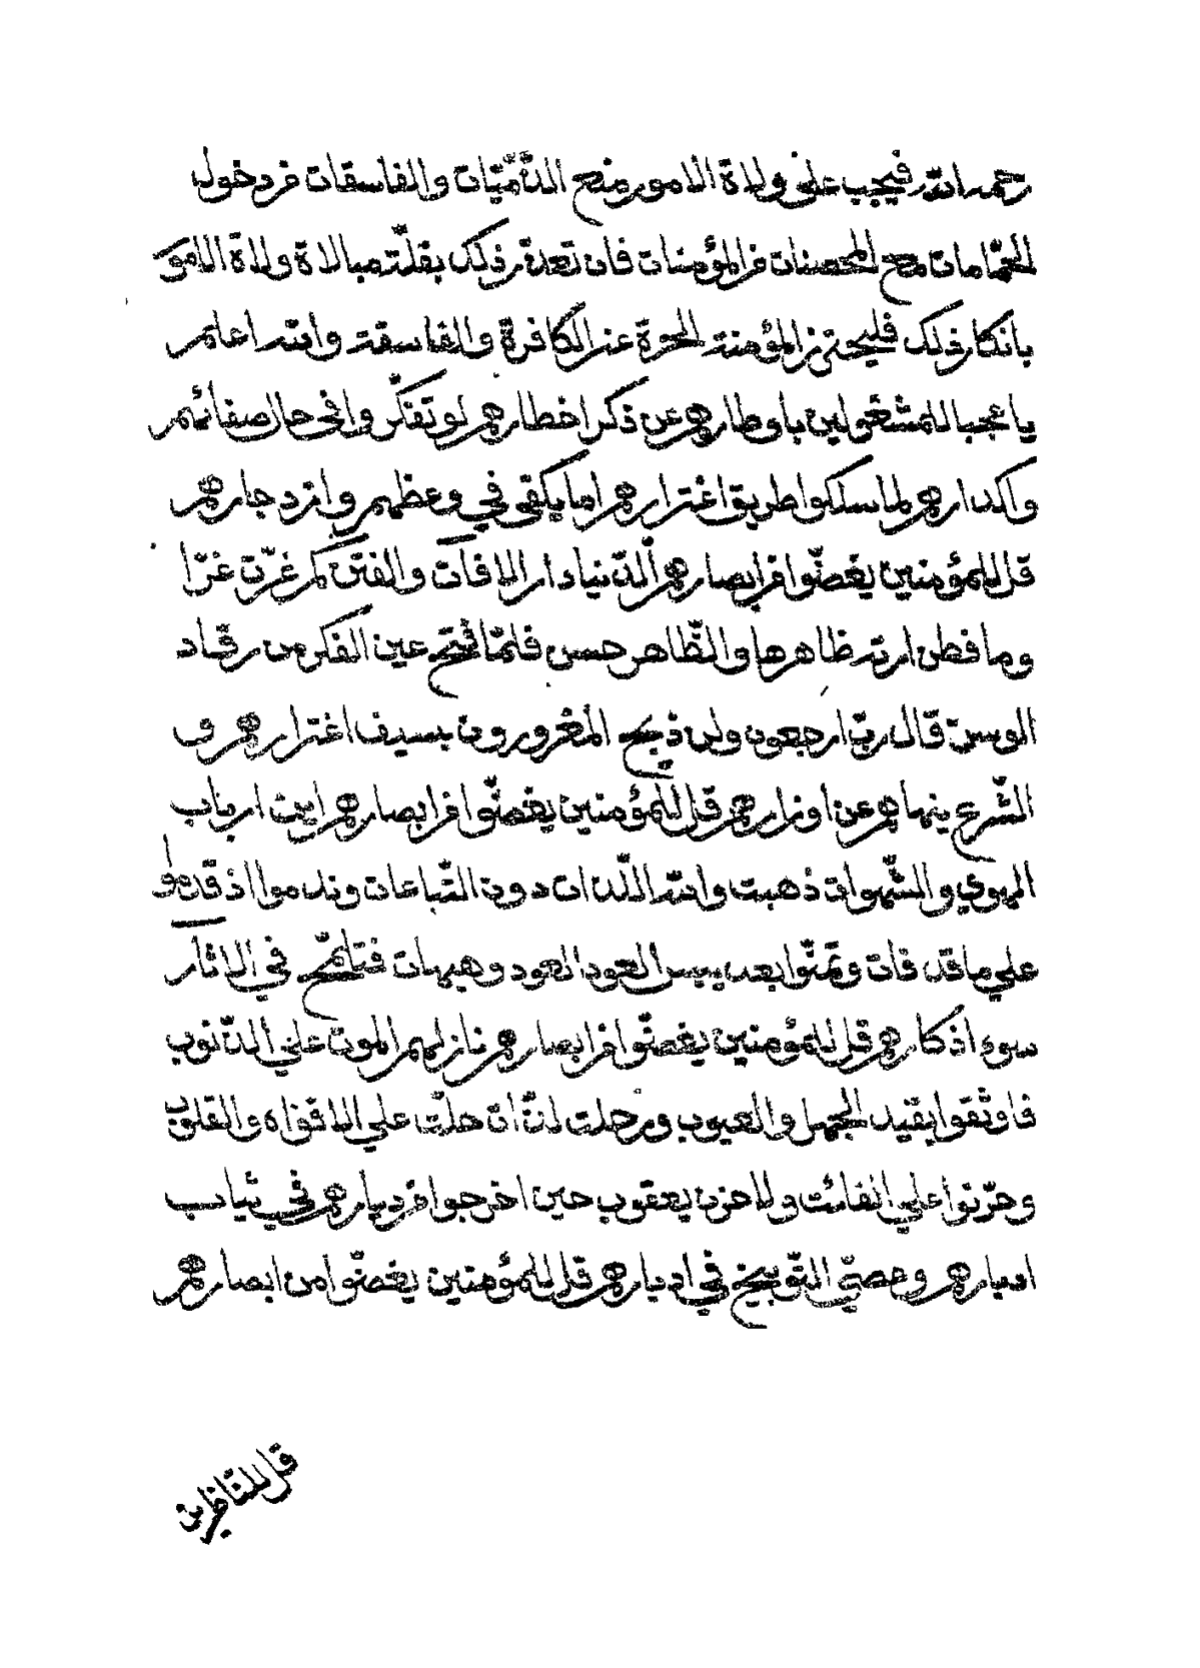 رحمه الله فيجب على ولاة الامور منع الذّمّيّات والفاسقات من دخول
الحمّامات مع المحصنات من المؤمنات فان تعذّر ذلك بقلّة مبالاة ولاة الامور
بانكار ذلك فليحترز المؤمنة الحرّة عن الكافرة والفاسقة والله اعلم
يا عجبا للمشغولين باوطارهم عن ذكر اخطارهم لو تفكّروا في حال صفائهم
واكدارهم لما سلكوا طريق اغترارهم اما يكفي في وعظهم وازدجارهم
قل للمؤمنين يغضّوا من ابصارهم الدّنيا دار الافات والفتن كم غرّت غرّا
وما فطن ارته ظاهرها والظّاهر حسن فلمّا فتح عين الفكر من رقاد
الوسن قال ربّ ارجعون ولن ذبح المغرورون بسيف اغترارهم و
الشّرع ينهاهم عن اوزارهم قل للمؤمنين يغضّوا من ابصارهم اين ارباب
الهوي والشّهوات ذهبت والله اللّذات دون التّباعات وندموا اذ قدموا
علي ما قد فات وتمنّوا بعد يبس العود العود وهيهات فتلمّح في الآثار
سوء اذكارهم قل للمؤمنين يغضّوا من ابصارهم نازلهم الموت علي الذّنوب
فاوثقوا بقيد الجهل والعيوب ورحلت لذّات حلّت علي الافواه والقلوب
وحزنوا علي الفائت ولا حزن يعقوب حين اخرجوا من ديارهم في ثياب
ادبارهم وعصيّ التّوبيخ في ادبارهم قل للمؤمنين يغضّوا من ابصارهم
قل للناظرين